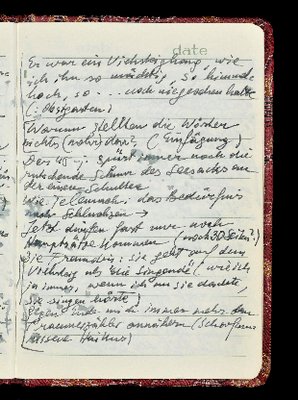 date
Er war ein Viehdrighang, wie
ich ihn so mächtig, so himmel-
hoch, so ... noch nie gesehen hatte
(: Obstgarten)
Warum stellten die Wörter
nichts (mehr) dar? (Einfügung)
Der 45 j. spürt immer noch die
rutschende Schnur des Seesacks an
der einen Schulter
Wie Telemach: das Bedürfnis
nach Schluchzen →
Jetzt dürfen fast nur noch
Hauptsätze kommen (noch 30 Seiten?)
Die Freundin: sie geht auf dem
als "die Singende" (wie ich
ja immer, wenn ich an sie dachte,
sie singen hörte)
Gegen Ende uns immer mehr dem
Traumerzähler annähern (
)